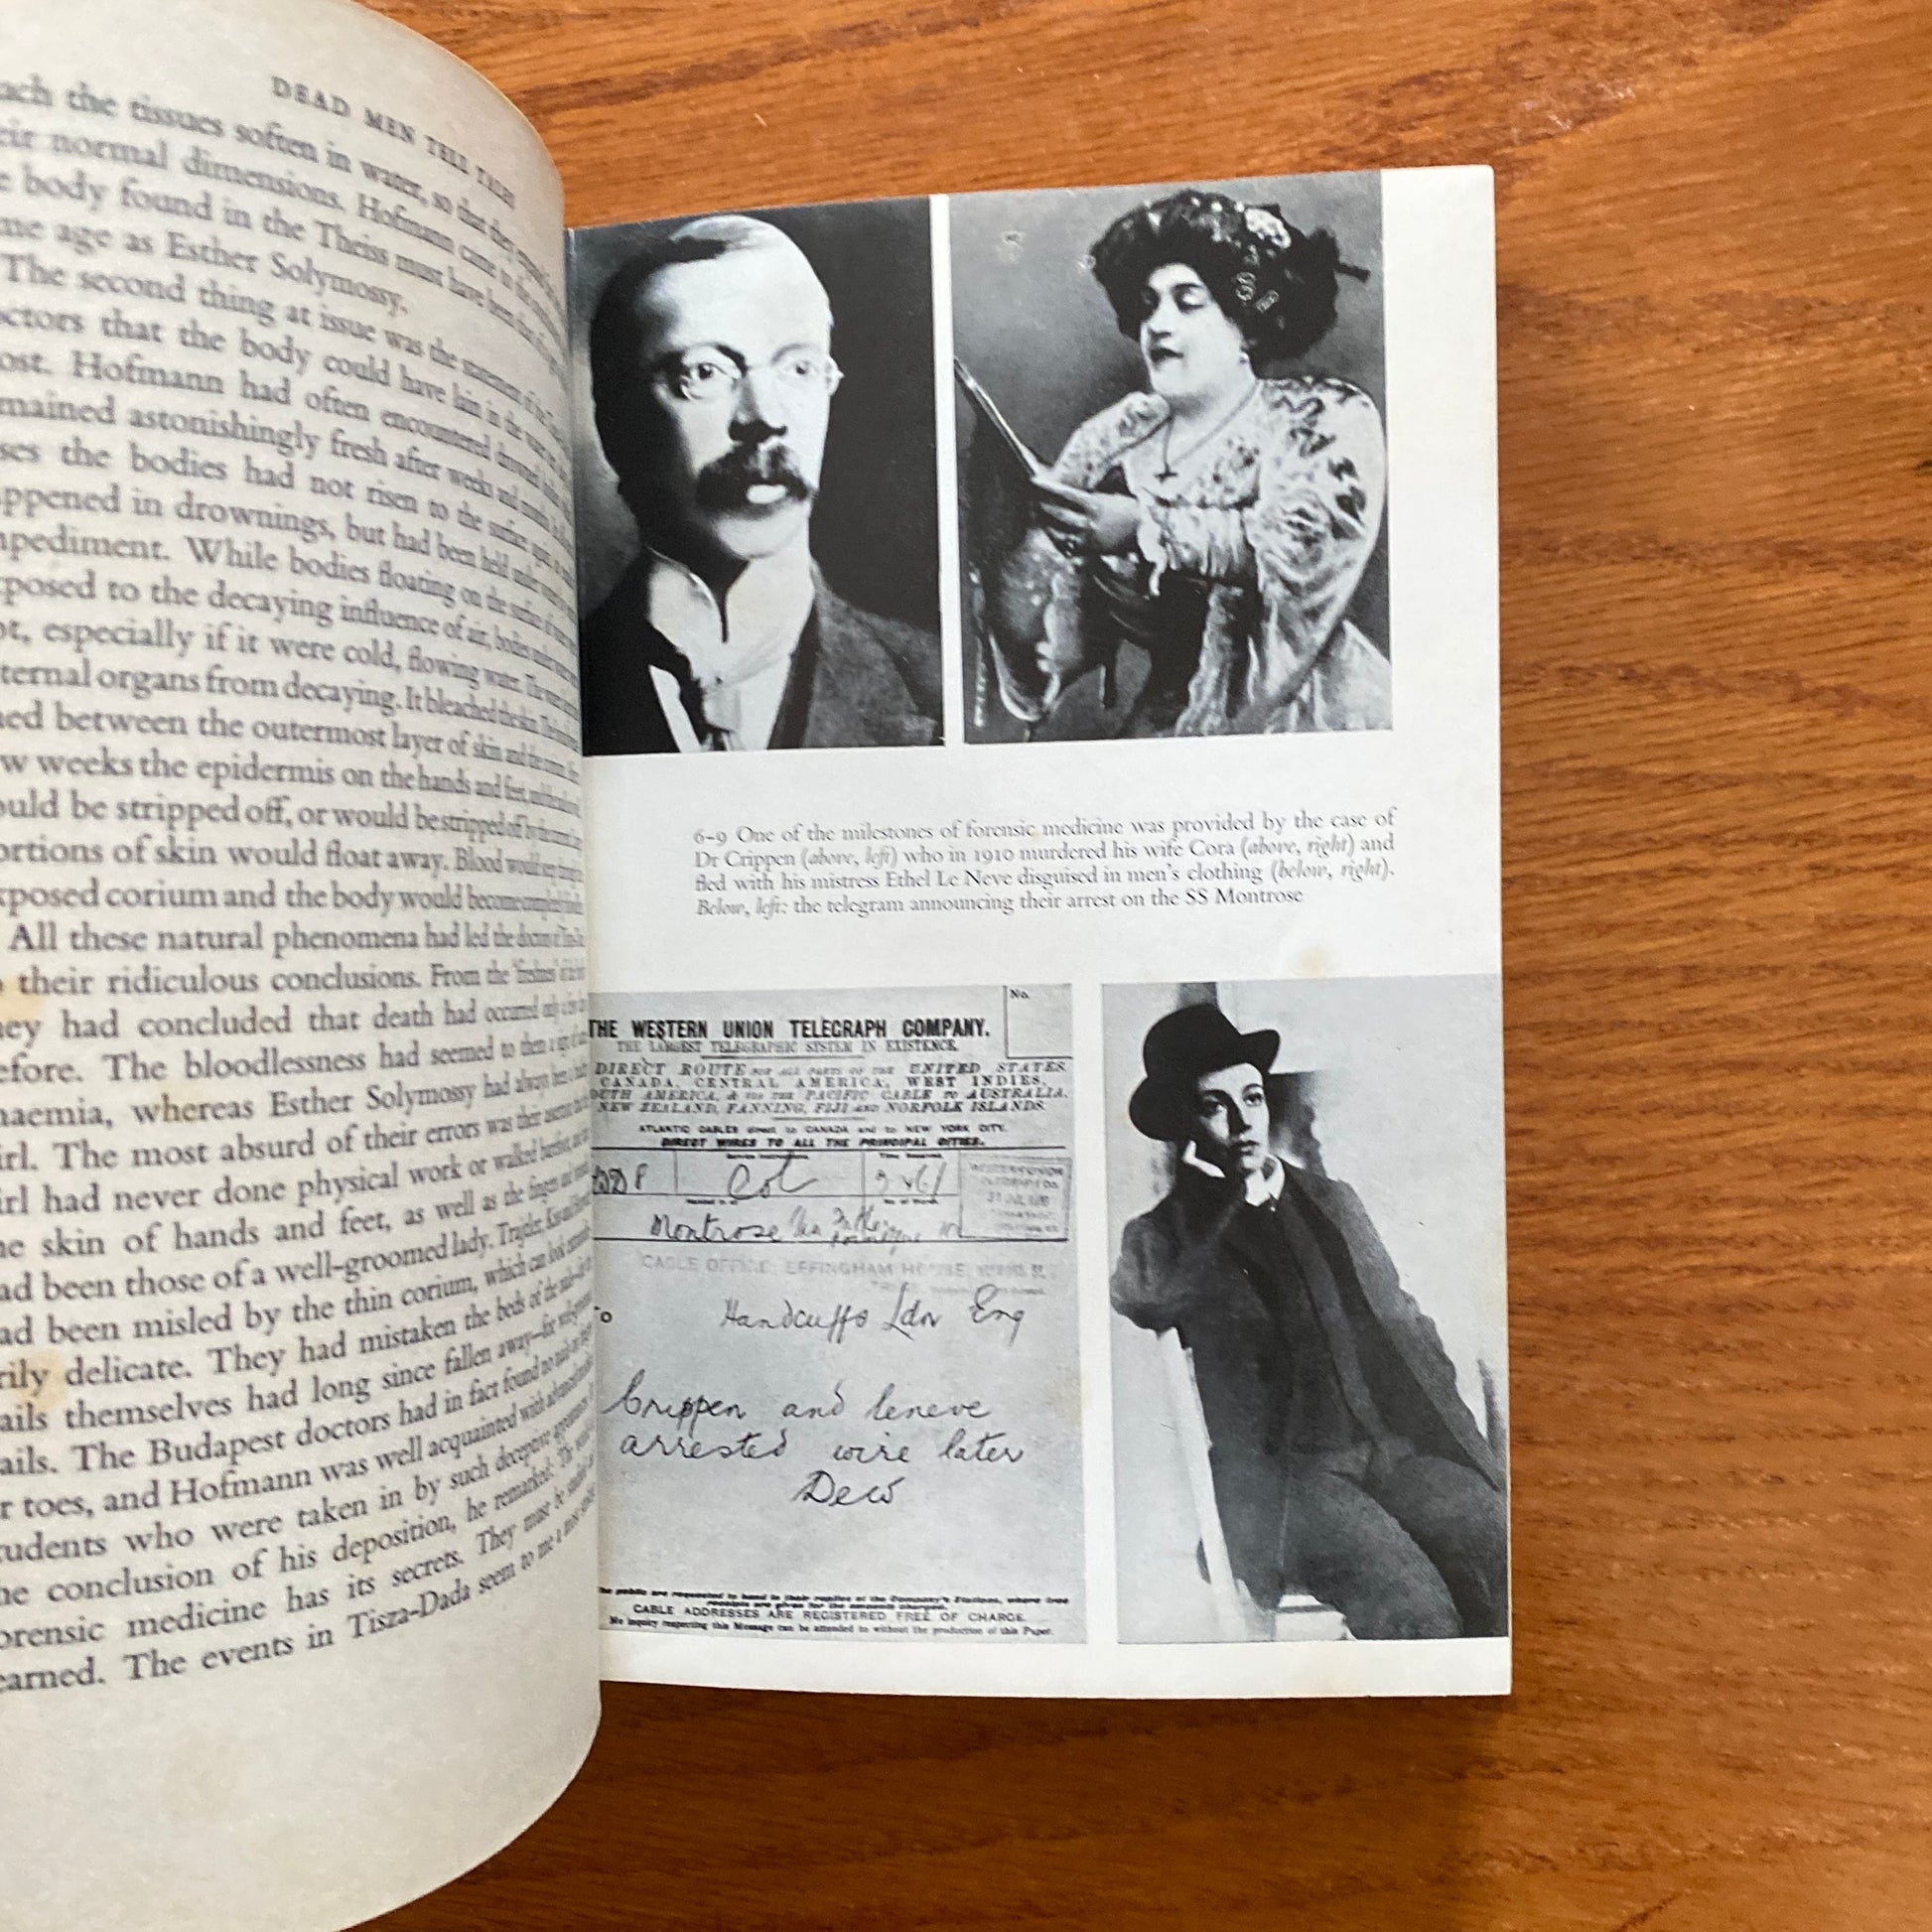 DEAD MEN TELL TALES
ach the tissues soften in water, so that they
eir normal dimensions. Hofmann came to the
e body found in the Theiss must have been
me age as Esther Solymossy.
The second thing at issue was the statement of the
octors that the body could have lain in the water
ost. Hofmann had often encountered drowned
mained astonishingly fresh after weeks and months
ses the bodies had not risen to the surface again, as
appened in drownings, but had been held under water
mpediment. While bodies floating on the surface
xposed to the decaying influence of air, bodies under water
ot, especially if it were cold, flowing water. The water
ternal organs from decaying. It bleached the skin.
ned between the outermost layer of skin and the corium.
ew weeks the epidermis on the hands and feet,
ould be stripped off, or would be stripped off by the current
ortions of skin would float away. Blood would seep
xposed corium and the body would become completely
All these natural phenomena had led the doctors
o their ridiculous conclusions. From the 'freshness' of
hey had concluded that death had occurred only a
efore. The bloodlessness had seemed to them a sign of
naemia, whereas Esther Solymossy had always been a
irl. The most absurd of their errors was their
irl had never done physical work or walked barefoot,
he skin of hands and feet, as well as the fingers and
ad been those of a well-groomed lady.
ad been misled by the thin corium, which can look
rily delicate. They had mistaken the beds of the nails
ails themselves had long since fallen away—for
ails. The Budapest doctors had in fact found no nails
r toes, and Hofmann was well acquainted with
tudents who were taken in by such deceptive
he conclusion of his deposition, he remarked:
orensic medicine has its secrets. They must be
earned. The events in Tisza-Dada seem to me a most
6-9 One of the milestones of forensic medicine was provided by the case of
Dr Crippen (above, left) who in 1910 murdered his wife Cora (above, right) and
fled with his mistress Ethel Le Neve disguised in men's clothing (below, right).
Below, left: the telegram announcing their arrest on the SS Montrose
No.
THE WESTERN UNION TELEGRAPH COMPANY.
THE LARGEST TELEGRAPHIC SYSTEM IN EXISTENCE.
DIRECT ROUTE FOR ALL PARTS OF THE UNITED STATES,
CANADA, CENTRAL AMERICA, WEST INDIES,
OUTH AMERICA, & VIA THE PACIFIC CABLE TO AUSTRALIA,
NEW ZEALAND, FANNING, FIJI AND NORFOLK ISLANDS.
ATLANTIC CABLES direct to CANADA and to NEW YORK CITY.
DIRECT WIRES TO ALL THE PRINCIPAL CITIES.
Col
Montrose
CABLE OFFICE, EFFINGHAM HOUSE
To
Handcuffs Ldn Eng
Crippen and leneve
arrested wire later
Dew
The public are requested to hand in their replies at the Company's Stations, where free
receipts are given for the amounts charged.
CABLE ADDRESSES ARE REGISTERED FREE OF CHARGE.
No inquiry respecting this Message can be attended to without the production of this Paper.